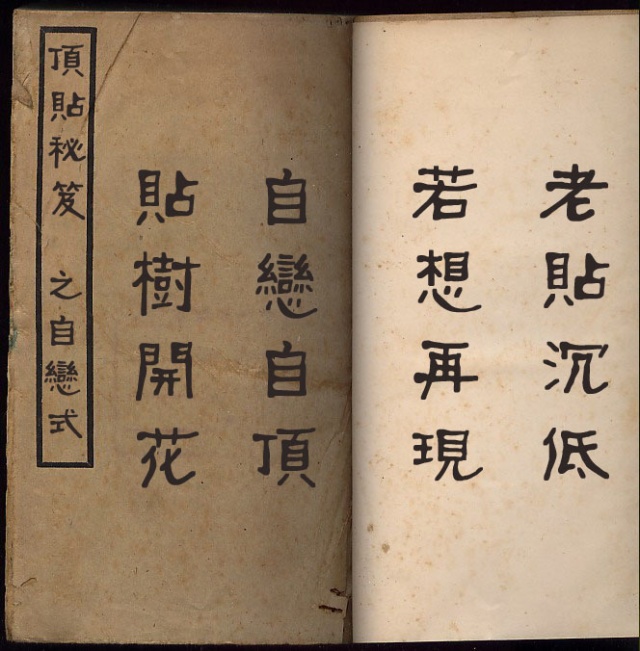 頂貼秘笈 之自戀式
老貼沉低
若想再現
自戀自頂
貼樹開花